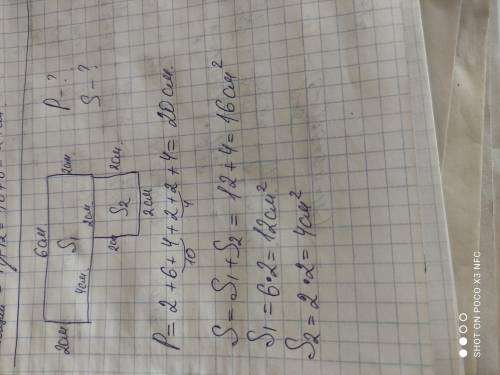 6см
2см
S₁
2см.
4см
2см
2см.
2см
S₂
2см
P-?
S-?
P = 2+6+4+2+2+4 = 20 см.
10
4
S = S₁ + S₂ = 12 + 4 = 16 см²
S₁ = 6·2 = 12 см²
S₂ = 2·2 = 4 см²
SHOT ON POCO X3 NFC